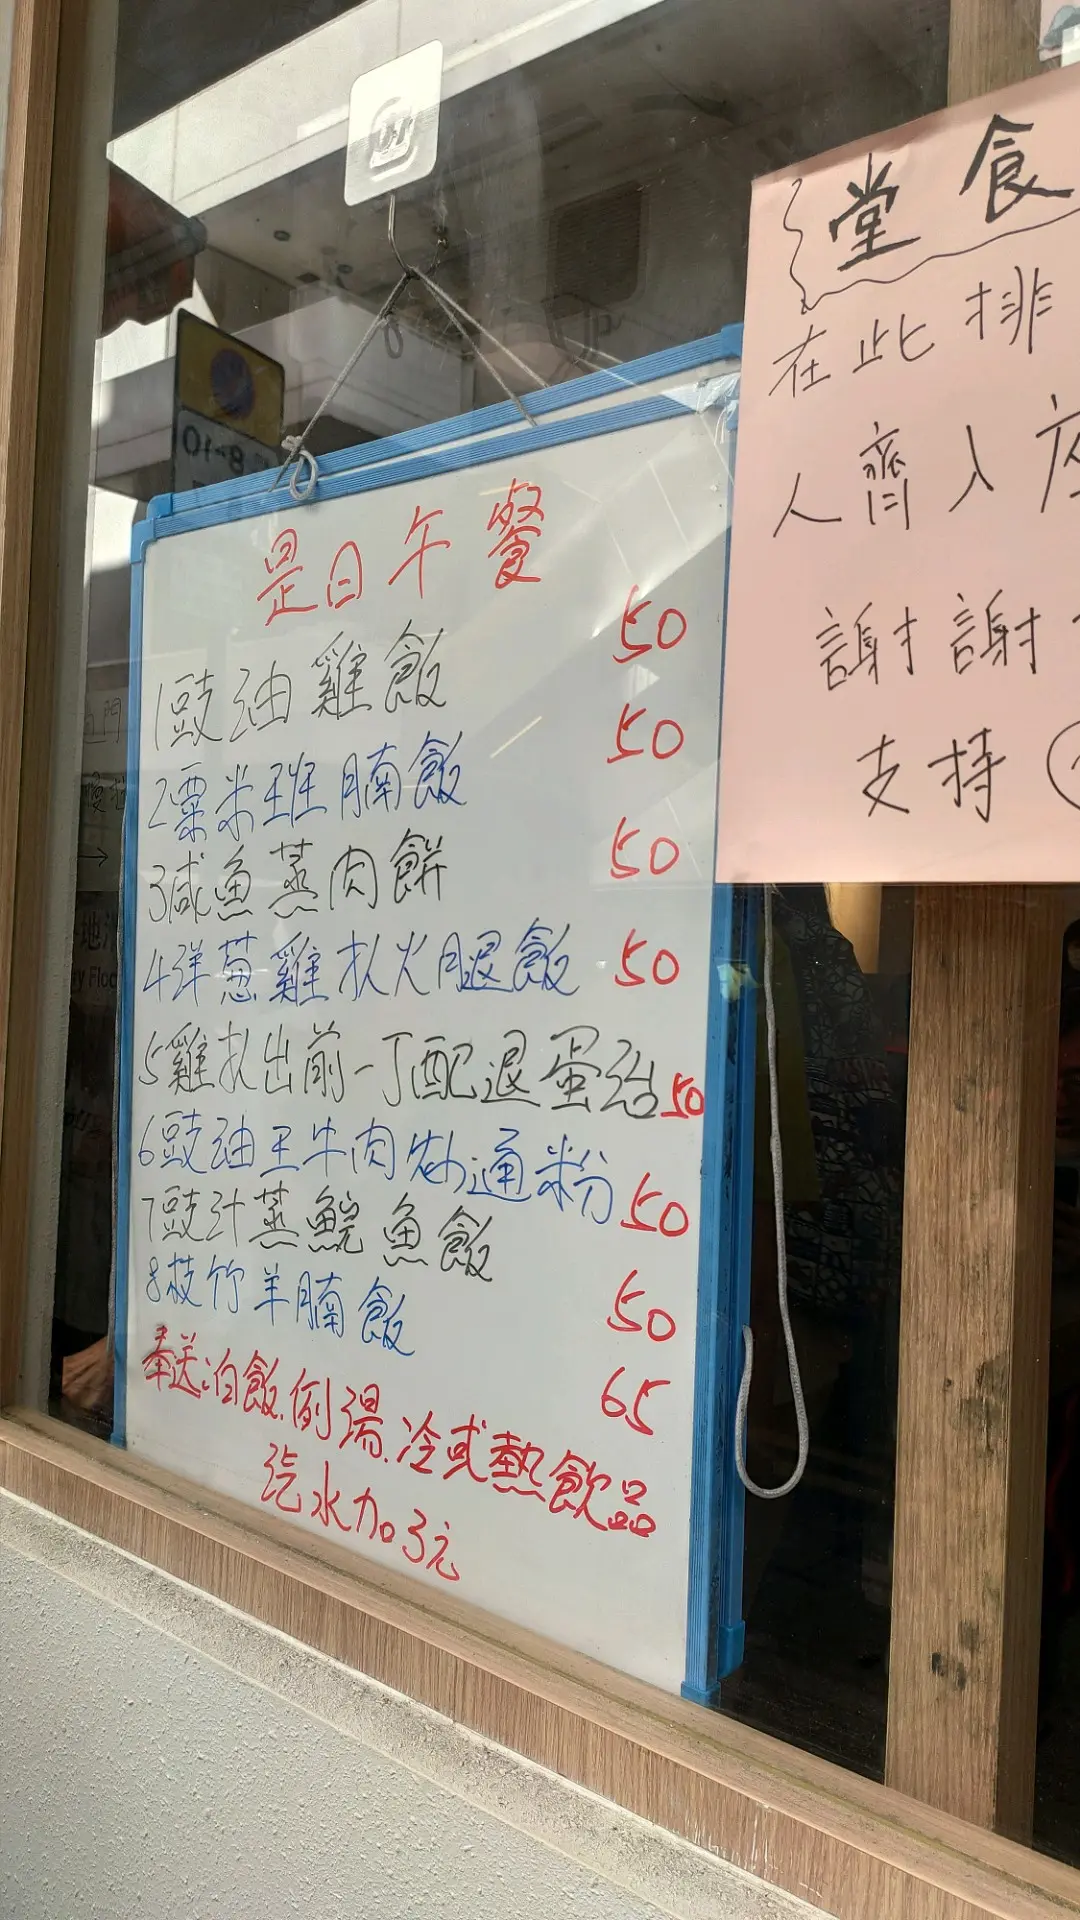 是日午餐
1豉油雞飯 50
2粟米班腩飯 50
3咸魚蒸肉餅 50
4洋葱雞扒火腿飯 50
5雞扒出前一丁配退蛋治 50
6豉油王牛肉炒通粉 50
7豉汁蒸鯇魚飯 50
8枝竹羊腩飯 65
奉送:白飯.例湯.冷或熱飲品
汽水加3元
堂食
在此排
人齊入座
謝謝
支持
8-10